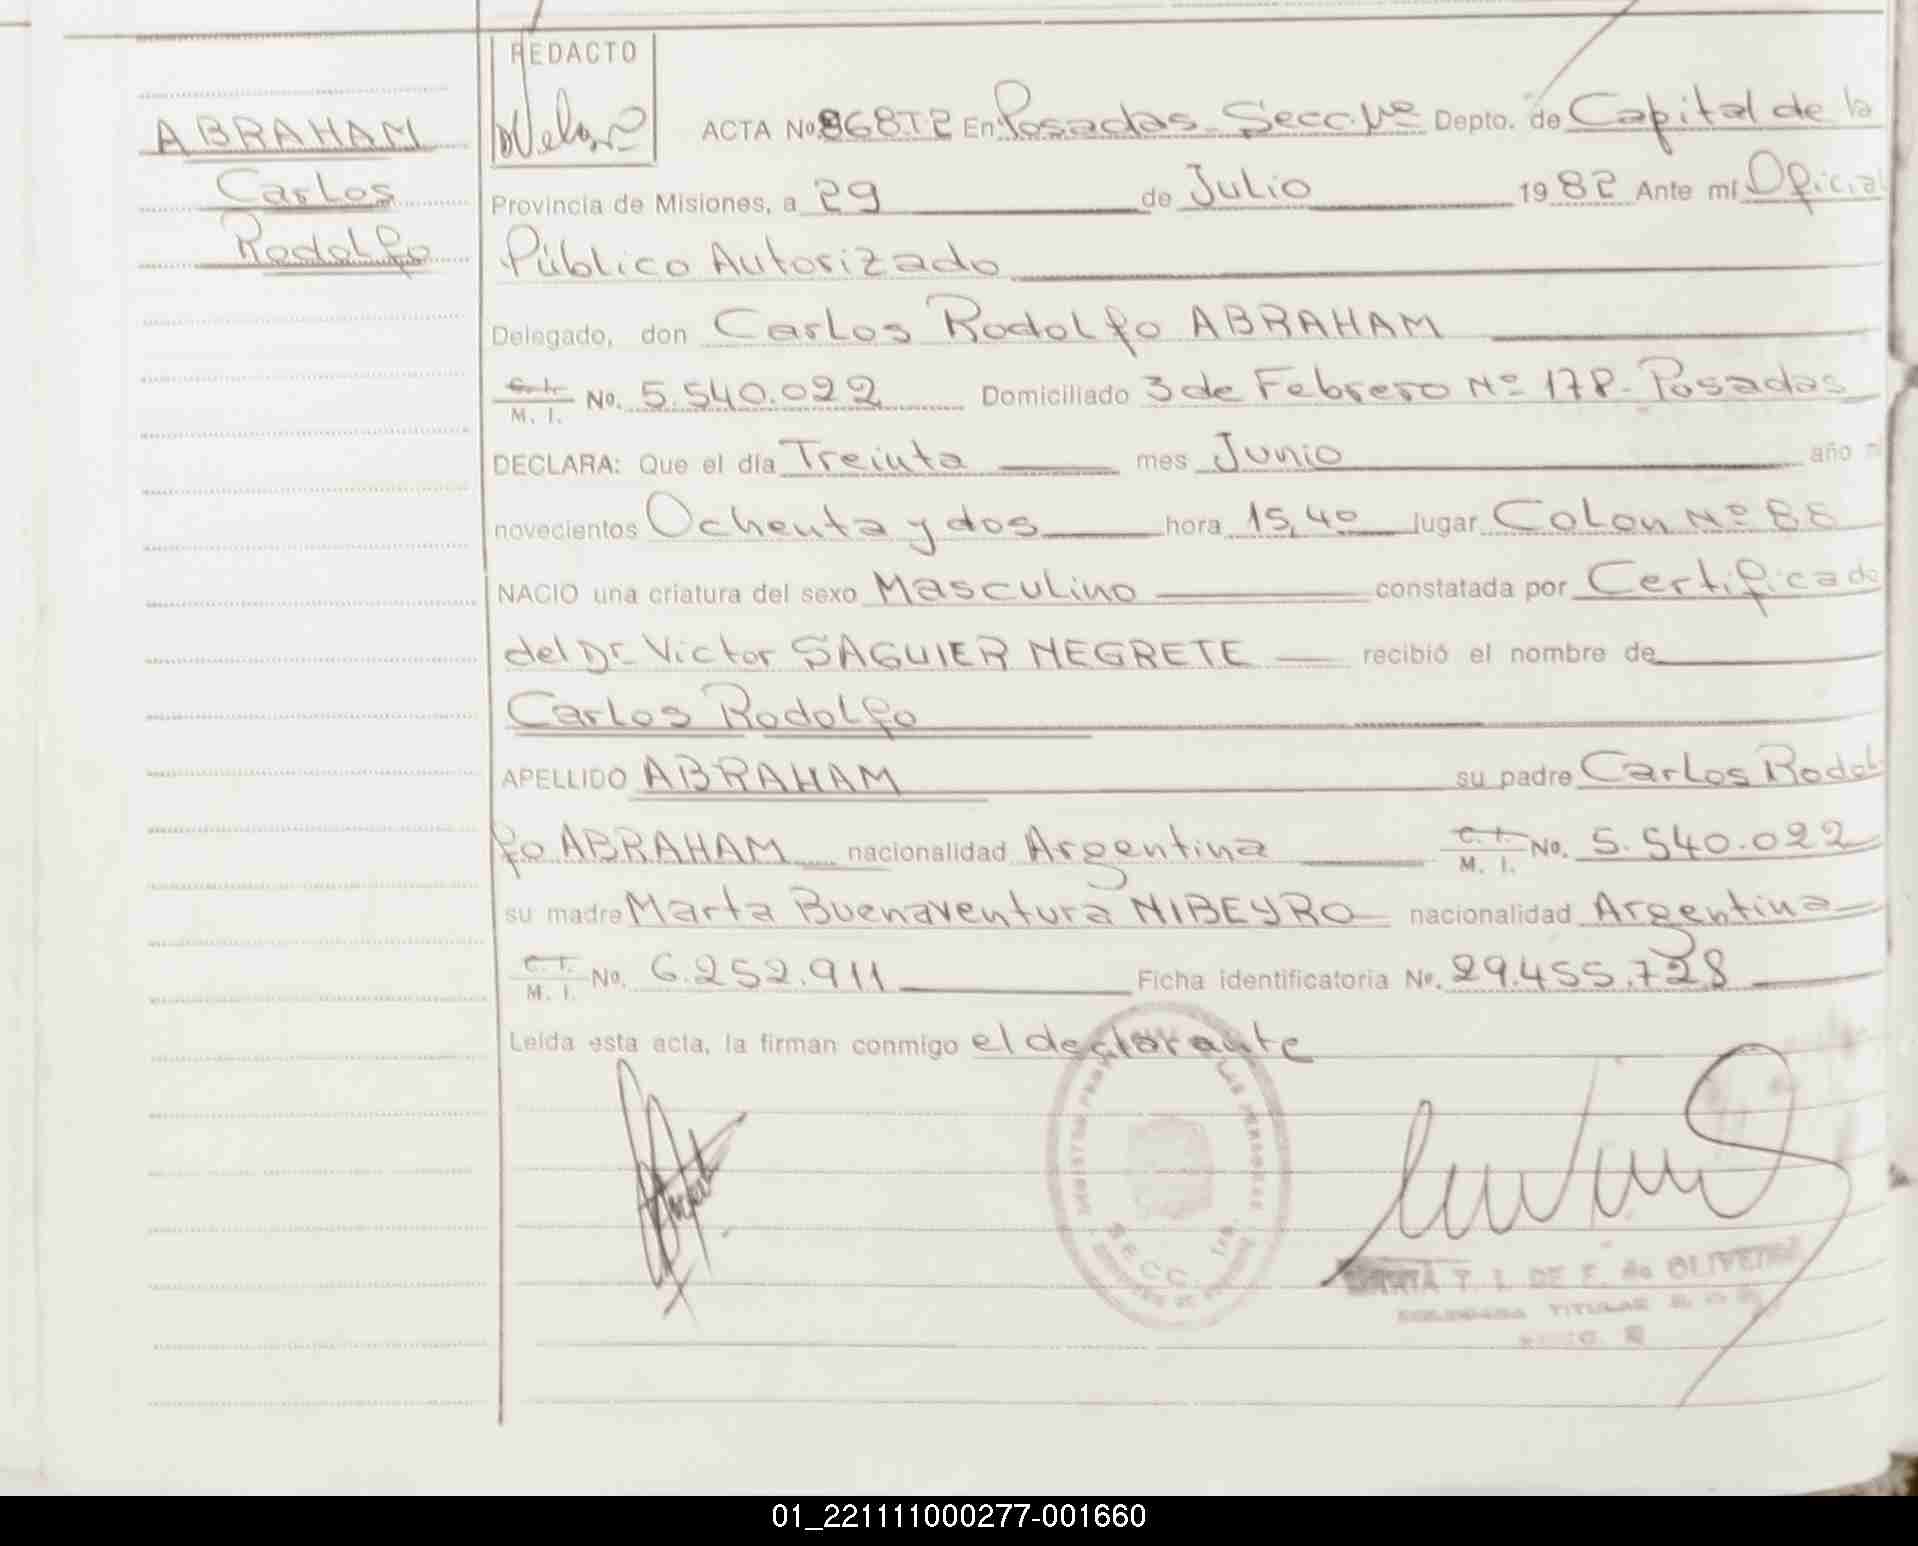 REDACTO
ABRAHAM
Carlos
Rodolfo
ACTA No. 868T2 En Posadas Secc. 1ª Depto. de Capital de la
Provincia de Misiones, a 29 de Julio 1982 Ante mí Oficial
Público Autorizado
Delegado, don Carlos Rodolfo ABRAHAM
C. I.
M. I. No. 5.540.022 Domiciliado 3 de Febrero Nº 178 - Posadas
DECLARA: Que el día Treinta mes Junio año
novecientos Ochenta y dos hora 15,40 lugar Colon Nº 88
NACIO una criatura del sexo Masculino constatada por Certificado
del Dr. Victor SAGUIER NEGRETE recibió el nombre de
Carlos Rodolfo
APELLIDO ABRAHAM su padre Carlos Rodol
fo ABRAHAM nacionalidad Argentina C. I.
M. I. No. 5.540.022
su madre Marta Buenaventura NIBEYRO nacionalidad Argentina
C. I.
M. I. No. 6.252.911 Ficha identificatoria No. 29.455.728
Leída esta acta, la firman conmigo el declarante
SECC. 1ra.
T. I. DE F. de OLIVEIRA
TITULAR
01_221111000277-001660